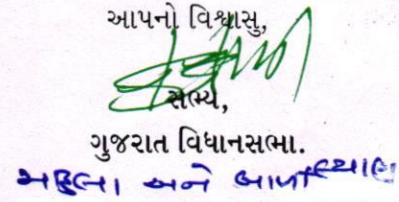 આપનો વિશ્વાસુ,
સભ્ય,
ગુજરાત વિધાનસભા.
મહિલા અને બાળ